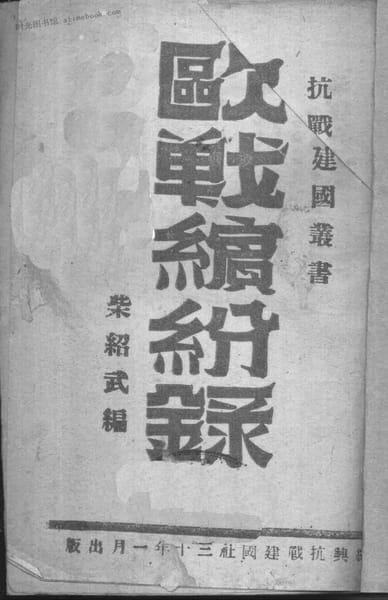 时光图书馆 atimebook.com
抗戰建國叢書
歐戰繽紛錄
柴紹武編
興抗戰建國社三十年一月出版